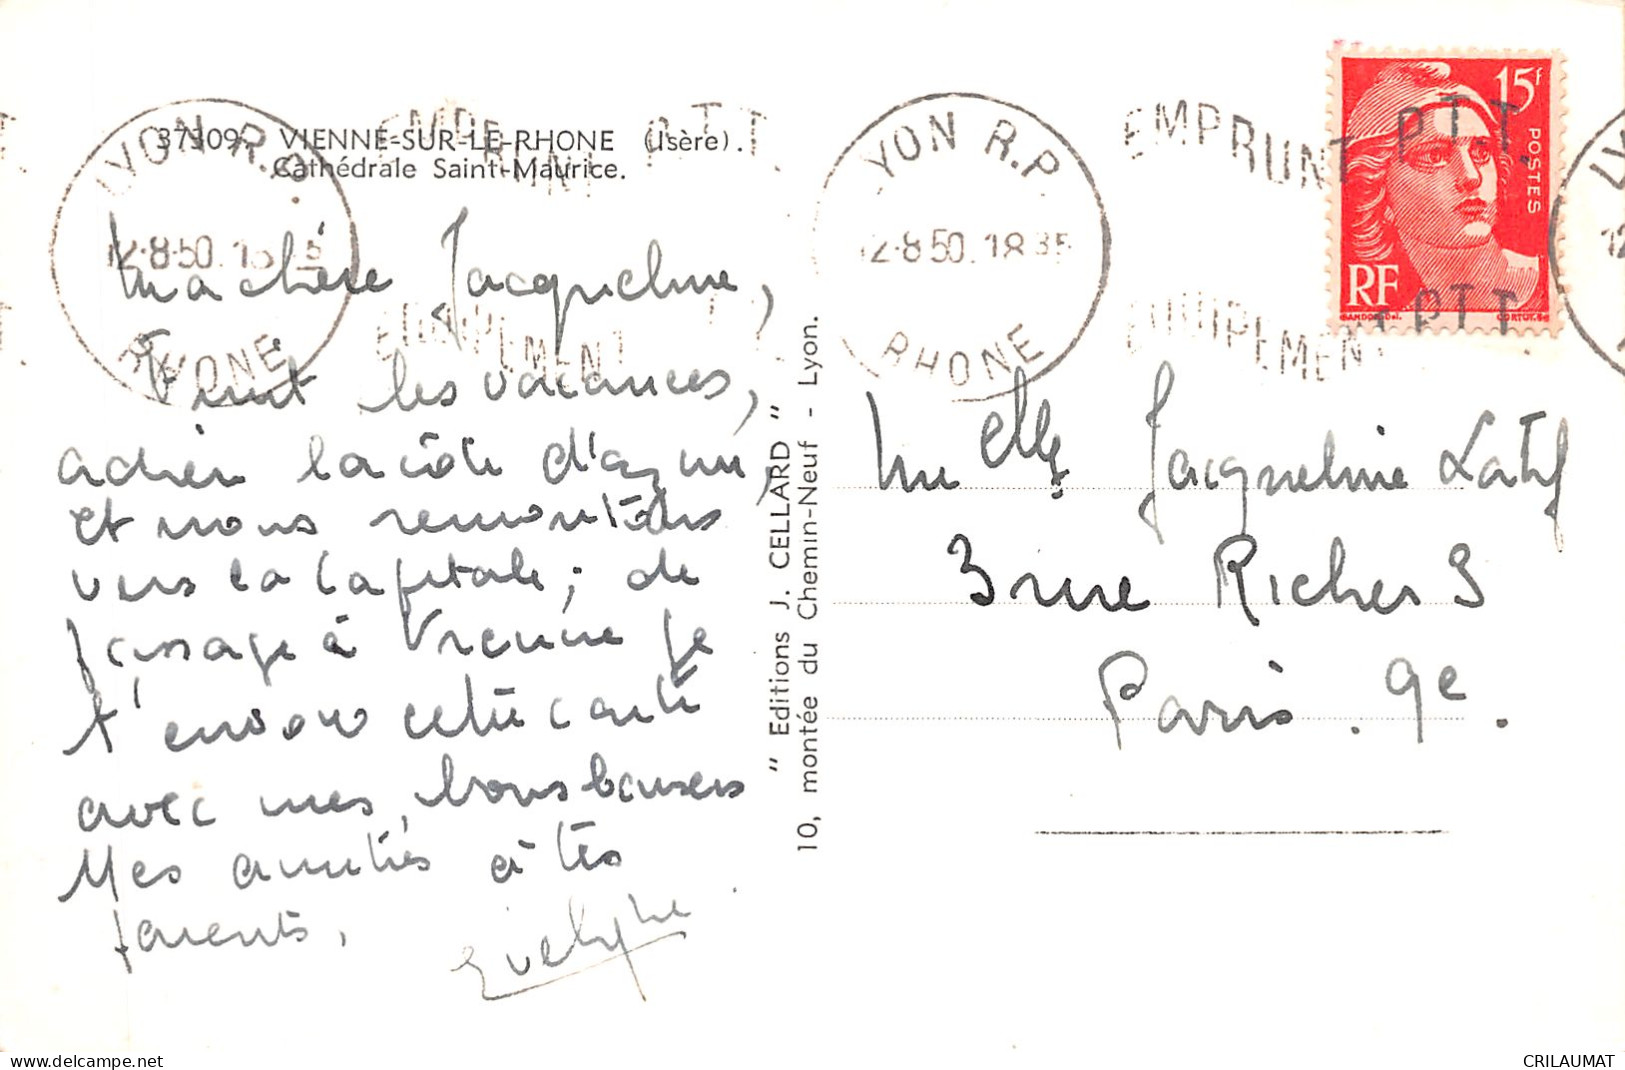 37309 - VIENNE-SUR-LE-RHONE (Isère).
Cathédrale Saint-Maurice.
LYON R.P.
12-8-50. 18 35
RHONE
EMPRUNT P.T.T.
EQUIPEMENT P.T.T.
Ma chère Jacqueline,
Finit les vacances,
adieu la côte d'azur,
et nous remontons
vers la Capitale ; de
passage à Vienne je
t'envoie cette carte
avec mes bons baisers
Mes amitiés à tes
parents,
Evelyne
" Editions J. CELLARD "
10, montée du Chemin-Neuf - Lyon.
LYON R.P.
12-8 50. 18 35
RHONE
EMPRUNT P.T.T.
EQUIPEMENT P.T.T.
15f
POSTES
RF
GANDON Del.
CORTOT Sc
LY
12
Melle Jacqueline Latif
3 rue Richer 3
Paris. 9e.
delcampe.net
CRILAUMAT